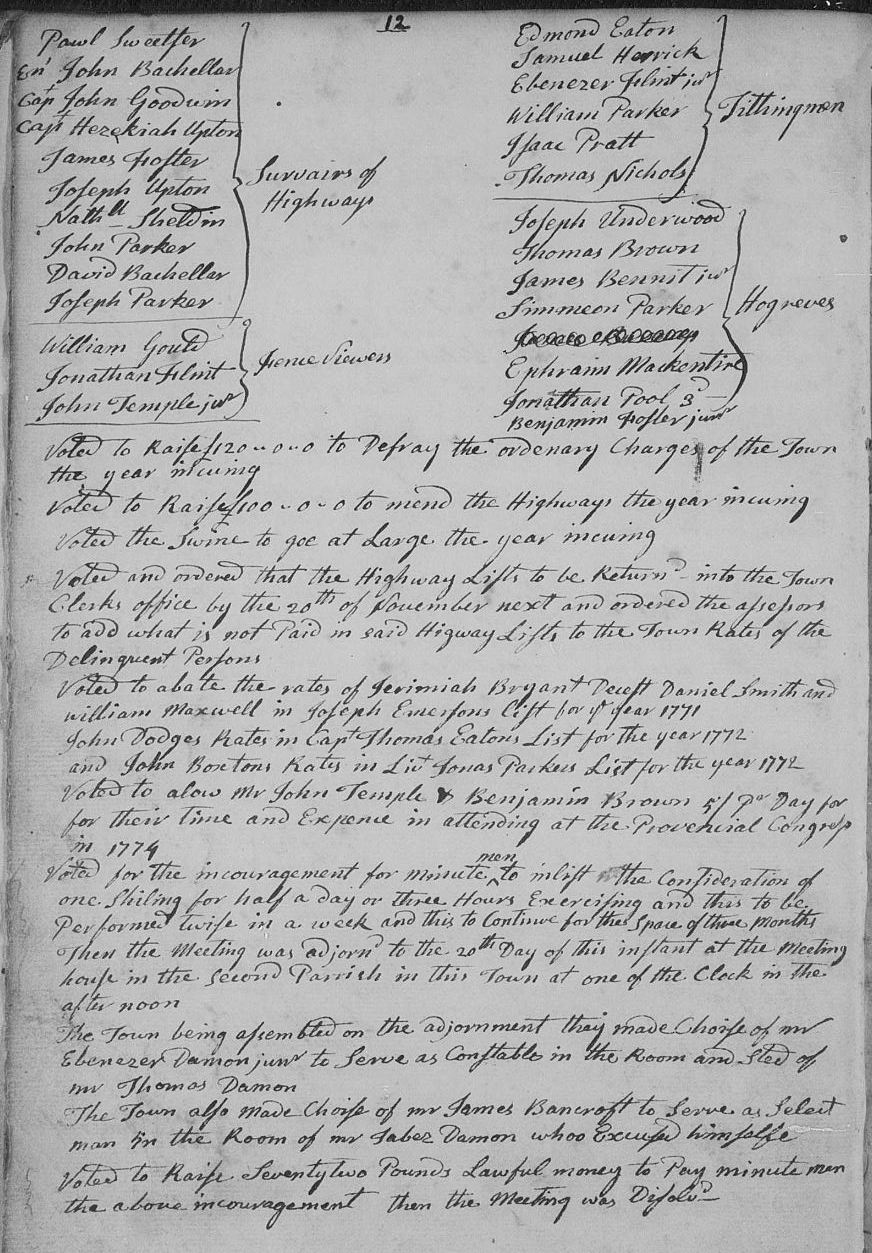 12
Pawl Sweetser
Enˢ John Bachellar
Capᵗ John Goodwin
Capᵗ Hezekiah Upton
James Foster
Joseph Upton
Nathˡˡ Sheldin
John Parker
David Bachellar
Joseph Parker
Survairs of
Highways
William Gould
Jonathan Flint
John Temple juʳ
Fence Viewers
Edmond Eaton
Samuel Herrick
Ebenezer Flint juʳ
William Parker
Isaac Pratt
Thomas Nichols
Tithingmen
Joseph Underwood
Thomas Brown
James Bennit juʳ
Simmeon Parker
Ephraim Mackentire
Jonathan Pool 3ᵈ
Benjamin Foster junʳ
Hogreves
Voted to Raise £120-0-0 to Defray the ordenary Charges of the Town
the year incuing
Voted to Raise £100-0-0 to mend the Highways the year incuing
Voted the Swine to goe at Large the year incuing
Voted and ordered that the Highway Lists to be Returnᵈ into the Town
Clerks office by the 20ᵗʰ of November next and ordered the assessors
to add what is not Paid in said Higway Lists to the Town Rates of the
Delinquent Persons
Voted to abate the rates of Jerimiah Bryant Decest Daniel Smith and
william Maxwell in Joseph Emersons List for yᵉ year 1771
John Dodges Rates in Capᵗ Thomas Eatons List for the year 1772
and John Boxtons Rates in Liuᵗ Jonas Parkers List for the year 1772
Voted to alow Mr John Temple & Benjamin Brown 5/ Pʳ Day for
for their time and Expence in attending at the Provencial Congress
in 1774
Voted for the incouragement for minute men to inlist the Consideration of
one Shiling for half a day or three Hours Exercising and this to be
Performed twise in a week and this to Continue for the Space of three Months
Then the Meeting was adjornᵈ to the 20ᵗʰ Day of this instant at the Meeting
house in the Second Parrish in this Town at one of the Clock in the
after noon
The Town being assembled on the adjornment they made Choise of mr
Ebenezer Damon junʳ to Serve as Constable in the Room and Sted of
mr Thomas Damon
The Town also made Choise of mr James Bancroft to Serve as Select
man in the Room of mr Jabez Damon whoo Excused himselfe
Voted to Raise Seventytwo Pounds Lawful money to Pay minute men
the above incouragement then the Meeting was Disolvᵈ